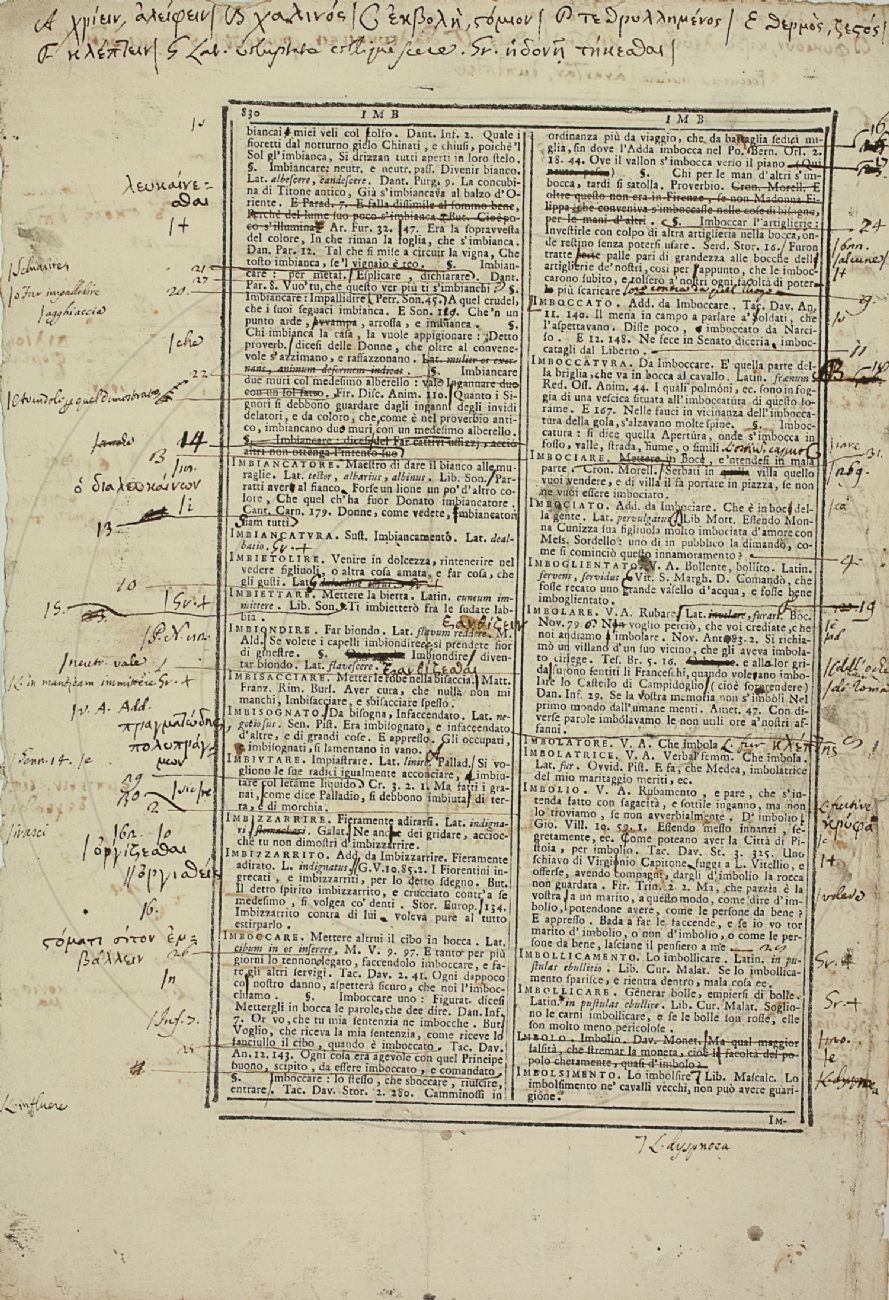 A χρίειν, ἀλείφειν| B χαλινός| C ἐκβολὴ, τόμιον| D τεθρυλλημένος| E θερμὸς, ζεςός|
F κλέπτειν| G Lat. voluptate ἡδονῇ τήκεσθαι|
830 IMB IMB
biancai miei veli col solfo. Dant. Inf. 2. Quale i
fioretti dal notturno gielo Chinati, e chiusi, poichè 'l
Sol gl'imbianca, Si drizzan tutti aperti in loro stelo.
§. Imbiancare: neutr. e neutr. pass. Divenir bianco.
Lat. albescere, candescere. Dant. Purg. 9. La concubi-
na di Titone antico, Già s'imbiancava al balzo d'O-
riente. E Parad. 7. E falla dissimile al sommo bene,
Perchè del lume suo poco s'imbianca. But. Cioè po-
co s'illumina. Ar. Fur. 32. 47. Era la sopravvesta
del colore, In che riman la foglia, che s'imbianca.
Dan. Par. 12. Tal che si mile a circuir la vigna, Che
tosto imbianca, se 'l vignaio è reo. §. Imbian-
care: per metaf. Esplicare, dichiarare. Dant.
Par. 8. Vuo' tu, che questo ver più ti s'imbianchi? §.
Imbiancare: Impallidire. Petr. Son. 45. A quel crudel,
che i suoi seguaci imbianca. E Son. 119. Che 'n un
punto arde, avvampa, arrossa, e imbianca. §.
Chi imbianca la casa, la vuole appigionare: Detto
proverb. dicesi delle Donne, che oltre al convene-
vole s'azzimano, e raffazzonano. Lat. mulier se exor-
nans, animum deformem indicat. §. Imbiancare
due muri col medesimo alberello: vale Ingannare due
con un sol fatto. Fir. Disc. Anim. 110. Quanto i Si-
gnori si debbono guardare dagli inganni degli invidi
delatori, e da coloro, che, come è nel proverbio anti-
co, imbiancano duo muri con un medesimo alberello.
§. Imbiancare: dicesi del Far cattivi uffizj, acciò
altri non ottenga l'intento suo
IMBIANCATORE. Maestro di dare il bianco alle mu-
raglie. Lat. tector, albarius, albinus. Lib. Son. Par-
ratti aver al fianco, Forse un lione un po' d'altro co-
lore, Che quel ch'ha fuor Donato imbiancatore.
Cant. Carn. 179. Donne, come vedete, Imbiancatori
siam tutti
IMBIANCATURA. Sust. Imbiancamento. Lat. deal-
batio.
IMBIETOLIRE. Venire in dolcezza, rintenerire nel
vedere figliuoli, o altra cosa amata, e far cosa, che
gli gusti. Lat.
IMBIETTARE. Mettere la bietta. Latin. cuneum im-
mittere. Lib. Son. Ti imbietterò fra le sudate lab-
bia.
IMBIONDIRE. Far biondo. Lat. flavum reddere. M.
Ald. Se volete i capelli imbiondire, si prendete fior
di ginestre. §. Imbiondire: diven-
tar biondo. Lat. flavescere. ξανθίζεσθαι
IMBISACCIARE. Metter le robe nella bisaccia. Matt.
Franz. Rim. Burl. Aver cura, che nulla non mi
manchi, Imbisacciare, e sbisacciare spesso.
IMBISOGNATO. Da bisogna, Infaccendato. Lat. ne-
gotiosus. Sen. Pist. Era imbisognato, e infaccendato
d'altre, e di grandi cose. E appresso. Gli occupati,
e imbisognati, si lamentano in vano.
IMBIUTARE. Impiastrare. Lat. linire. Pallad. Si vo-
gliono le sue radici igualmente acconciare, e imbiu-
tare col letame liquido. Cr. 3. 2. 1. Ma fatti i gra-
nai, come dice Palladio, si debbono imbiutar di ter-
ra, e di morchia.
IMBIZZARRIRE. Fieramente adirarsi. Lat. indigna-
ri, stomachari. Galat. Ne anche dei gridare, accioc-
chè tu non dimostri d'imbizzarrire.
IMBIZZARRITO. Add. da Imbizzarrire. Fieramente
adirato. L. indignatus. G.V. 10. 85. 2. I Fiorentini in-
grecati, e imbizzarriti, per lo detto sdegno. But.
Il detto spirito imbizzarrito, e crucciato contr'a se
medesimo, si volgea co' denti. Stor. Europ. 134.
Imbizzarrito contra di lui, voleva pure al tutto
estirparlo.
IMBOCCARE. Mettere altrui il cibo in bocca. Lat.
cibum in os inserere. M. V. 9. 97. E tanto per più
giorni lo tennono legato, faccendolo imboccare, e fa-
re gli altri servigi. Tac. Dav. 2. 41. Ogni dappoco
col nostro danno, aspetterà sicuro, che noi l'imboc-
chiamo. §. Imboccare uno: Figurat. dicesi
Mettergli in bocca le parole, che dee dire. Dan. Inf.
7. Or vo, che tu mia sentenzia ne imbocche. But.
Voglio, che riceva la mia sentenzia, come riceve lo
fanciullo il cibo, quando è imboccato. Tac. Dav.
An. 12. 143. Ogni cosa era agevole con quel Principe
buono, scipito, da essere imboccato, e comandato.
§. Imboccare: lo stesso, che sboccare, riuscire,
entrare. Tac. Dav. Stor. 2. 280. Camminossi in
ordinanza più da viaggio, che da battaglia sedici mi-
glia, sin dove l'Adda imbocca nel Po. Bern. Orl. 2.
18. 44. Ove il vallon s'imbocca verso il piano (Qui
neutr. pass.) §. Chi per le man d'altri s'im-
bocca, tardi si satolla. Proverbio. Cron. Morell. E
oltre questo non era in Firenze, se non Madonna Fi-
lippa, che conveniva s'imboccasse nelle cose di bisogna,
per le mani d'altri. §. Imboccar l'artiglierie:
Investirle con colpo di altra artiglieria nella bocca, on-
de restino senza potersi usare. Serd. Stor. 16. Furon
tratte sette palle pari di grandezza alle bocche dell'
artiglierie de' nostri, così per appunto, che le imboc-
carono subito, e tolsero a' nostri ogni facoltà di poter-
le più scaricare
IMBOCCATO. Add. da Imboccare. Tac. Dav. An.
11. 140. Il mena in campo a parlare a' soldati, che
l'aspettavano. Disse poco, imboccato da Narci-
so. E 12. 148. Ne fece in Senato diceria, imboc-
catagli dal Liberto.
IMBOCCATURA. Da Imboccare. E' quella parte del-
la briglia, che va in bocca al cavallo. Latin. frænum.
Red. Oss. Anim. 44. I quali polmoni, ec. sono in fog-
gia di una vescica situata all'imboccatura di questo fo-
rame. E 167. Nelle fauci in vicinanza dell'imbocca-
tura della gola, s'alzavano molte spine. §. Imboc-
catura: si dice quella Apertura, onde s'imbocca in
fosso, valle, strada, fiume, o simili.
IMBOCIARE. Mettere in Boce, e 'ntendesi in mala
parte. Cron. Morell. Serbati in quella villa quello
vuoi vendere, e di villa il fa portare in piazza, se non
ne vuoi essere imbociato.
IMBOCIATO. Add. da Imbociare. Che è in boce del-
la gente. Lat. pervulgatus. Lib Mott. Essendo Mon-
na Cunizza sua figliuola molto imbociata d'amore con
Mess. Sordello: uno di in pubblico la dimandò, co-
me si cominciò questo innamoramento?
IMBOGLIENTATO. V. A. Bollente, bollito. Latin.
fervens, fervidus. Vit. S. Margh. D. Comandò, che
fosse recato uno grande vasello d'acqua, e fosse bene
imboglientato.
IMBOLARE. V. A. Rubare. Lat. involare, furari. Boc.
Nov. 79. 6. Non voglio perciò, che voi crediate, che
noi andiamo imbolare. Nov. Ant. 83. 2. Si richia-
mò un villano d'un suo vicino, che gli aveva imbola-
to ciriege. Tes. Br. 5. 16. e allor gri-
da, suono sentiti li Franceschi, quando volean imbo-
lare lo Castello di Campidoglio (cioè sorprendere)
Dan. Inf. 29. Se la vostra memoria non s'imboli Nel
primo mondo dall'umane menti. Amet. 47. Con di-
verse parole imbolavamo le non utili ore a' nostri af-
fanni.
IMBOLATORE. V. A. Che imbola L. fur κλέπτης
IMBOLATRICE. V. A. Verbal femm. Che imbola.
Lat. fur. Ovid. Pist. E fa, che Medea, imbolatrice
del mio maritaggio meriti, ec.
IMBOLIO. V. A. Rubamento, e pare, che s'in-
tenda fatto con sagacità, e sottile inganno, ma non
lo troviamo, se non avverbialmente. D' imbolio.
Gio. Vill. 10. 59. 1. Essendo messo innanzi, se-
gretamente, ec. Come poteano aver la Città di Pi-
stoia, per imbolio. Tac. Dav. St. 3. 325. Uno
schiavo di Virginio Capitone, fuggì a L. Vitellio, e
offerse, avendo compagni, dargli d'imbolio la rocca
non guardata. Fir. Trin. 2. 2. Ma, che pazzia è la
vostra, a un marito, a questo modo, come dire d'im-
bolio, potendone avere, come le persone da bene?
E appresso. Bada a far le faccende, e se io vo tor
marito d'imbolio, o non d'imbolio, o come le per-
sone da bene, lasciane il pensiero a me
IMBOLLICAMENTO. Lo imbollicare. Latin. in pu-
stulas ebullitio. Lib. Cur. Malat. Se lo imbollica-
mento sparisce, e rientra dentro, mala cosa ec.
IMBOLLICARE. Generar bolle, empiersi di bolle.
Latin. in pustulas ebullire. Lib. Cur. Malat. Soglio-
no le carni imbollicare, e se le bolle son rosse, elle
son molto meno pericolose.
IMBOLO. Imbolio. Dav. Monet. Ma qual maggior
falsità, che stremar la moneta, cioè la facoltà del po-
polo chetamente, quasi d'imbolo?
IMBOLSIMENTO. Lo imbolsire. Lib. Mascalc. Lo
imbolsimento ne' cavalli vecchi, non può avere guari-
gione.
IM-
λευκαίνε-
σθαι
21
27
|o Far impallidire
20
|agghiaccia
|che
22
14
13
ὁ διαλευκαίνων
|i
13
10
|Gr. +
15.
|P. N. 112.
|neutr. vale
|v. A. Add.
πραγματώδης
πολυπράγ-
μων
29
30
2
|nasci
|ὀργίζεσθαι
|ὀργιςθείς
16.
ςόματι σῖτον ἐμ-
βάλλειν
26
|n
|Inf. 7.
25
L. influere
16
17
24
|alcune
9
11
18
31.
|ca
4
19
κρύφα
|volere
Gr. +
Gr. +
7 L. dyspnoea